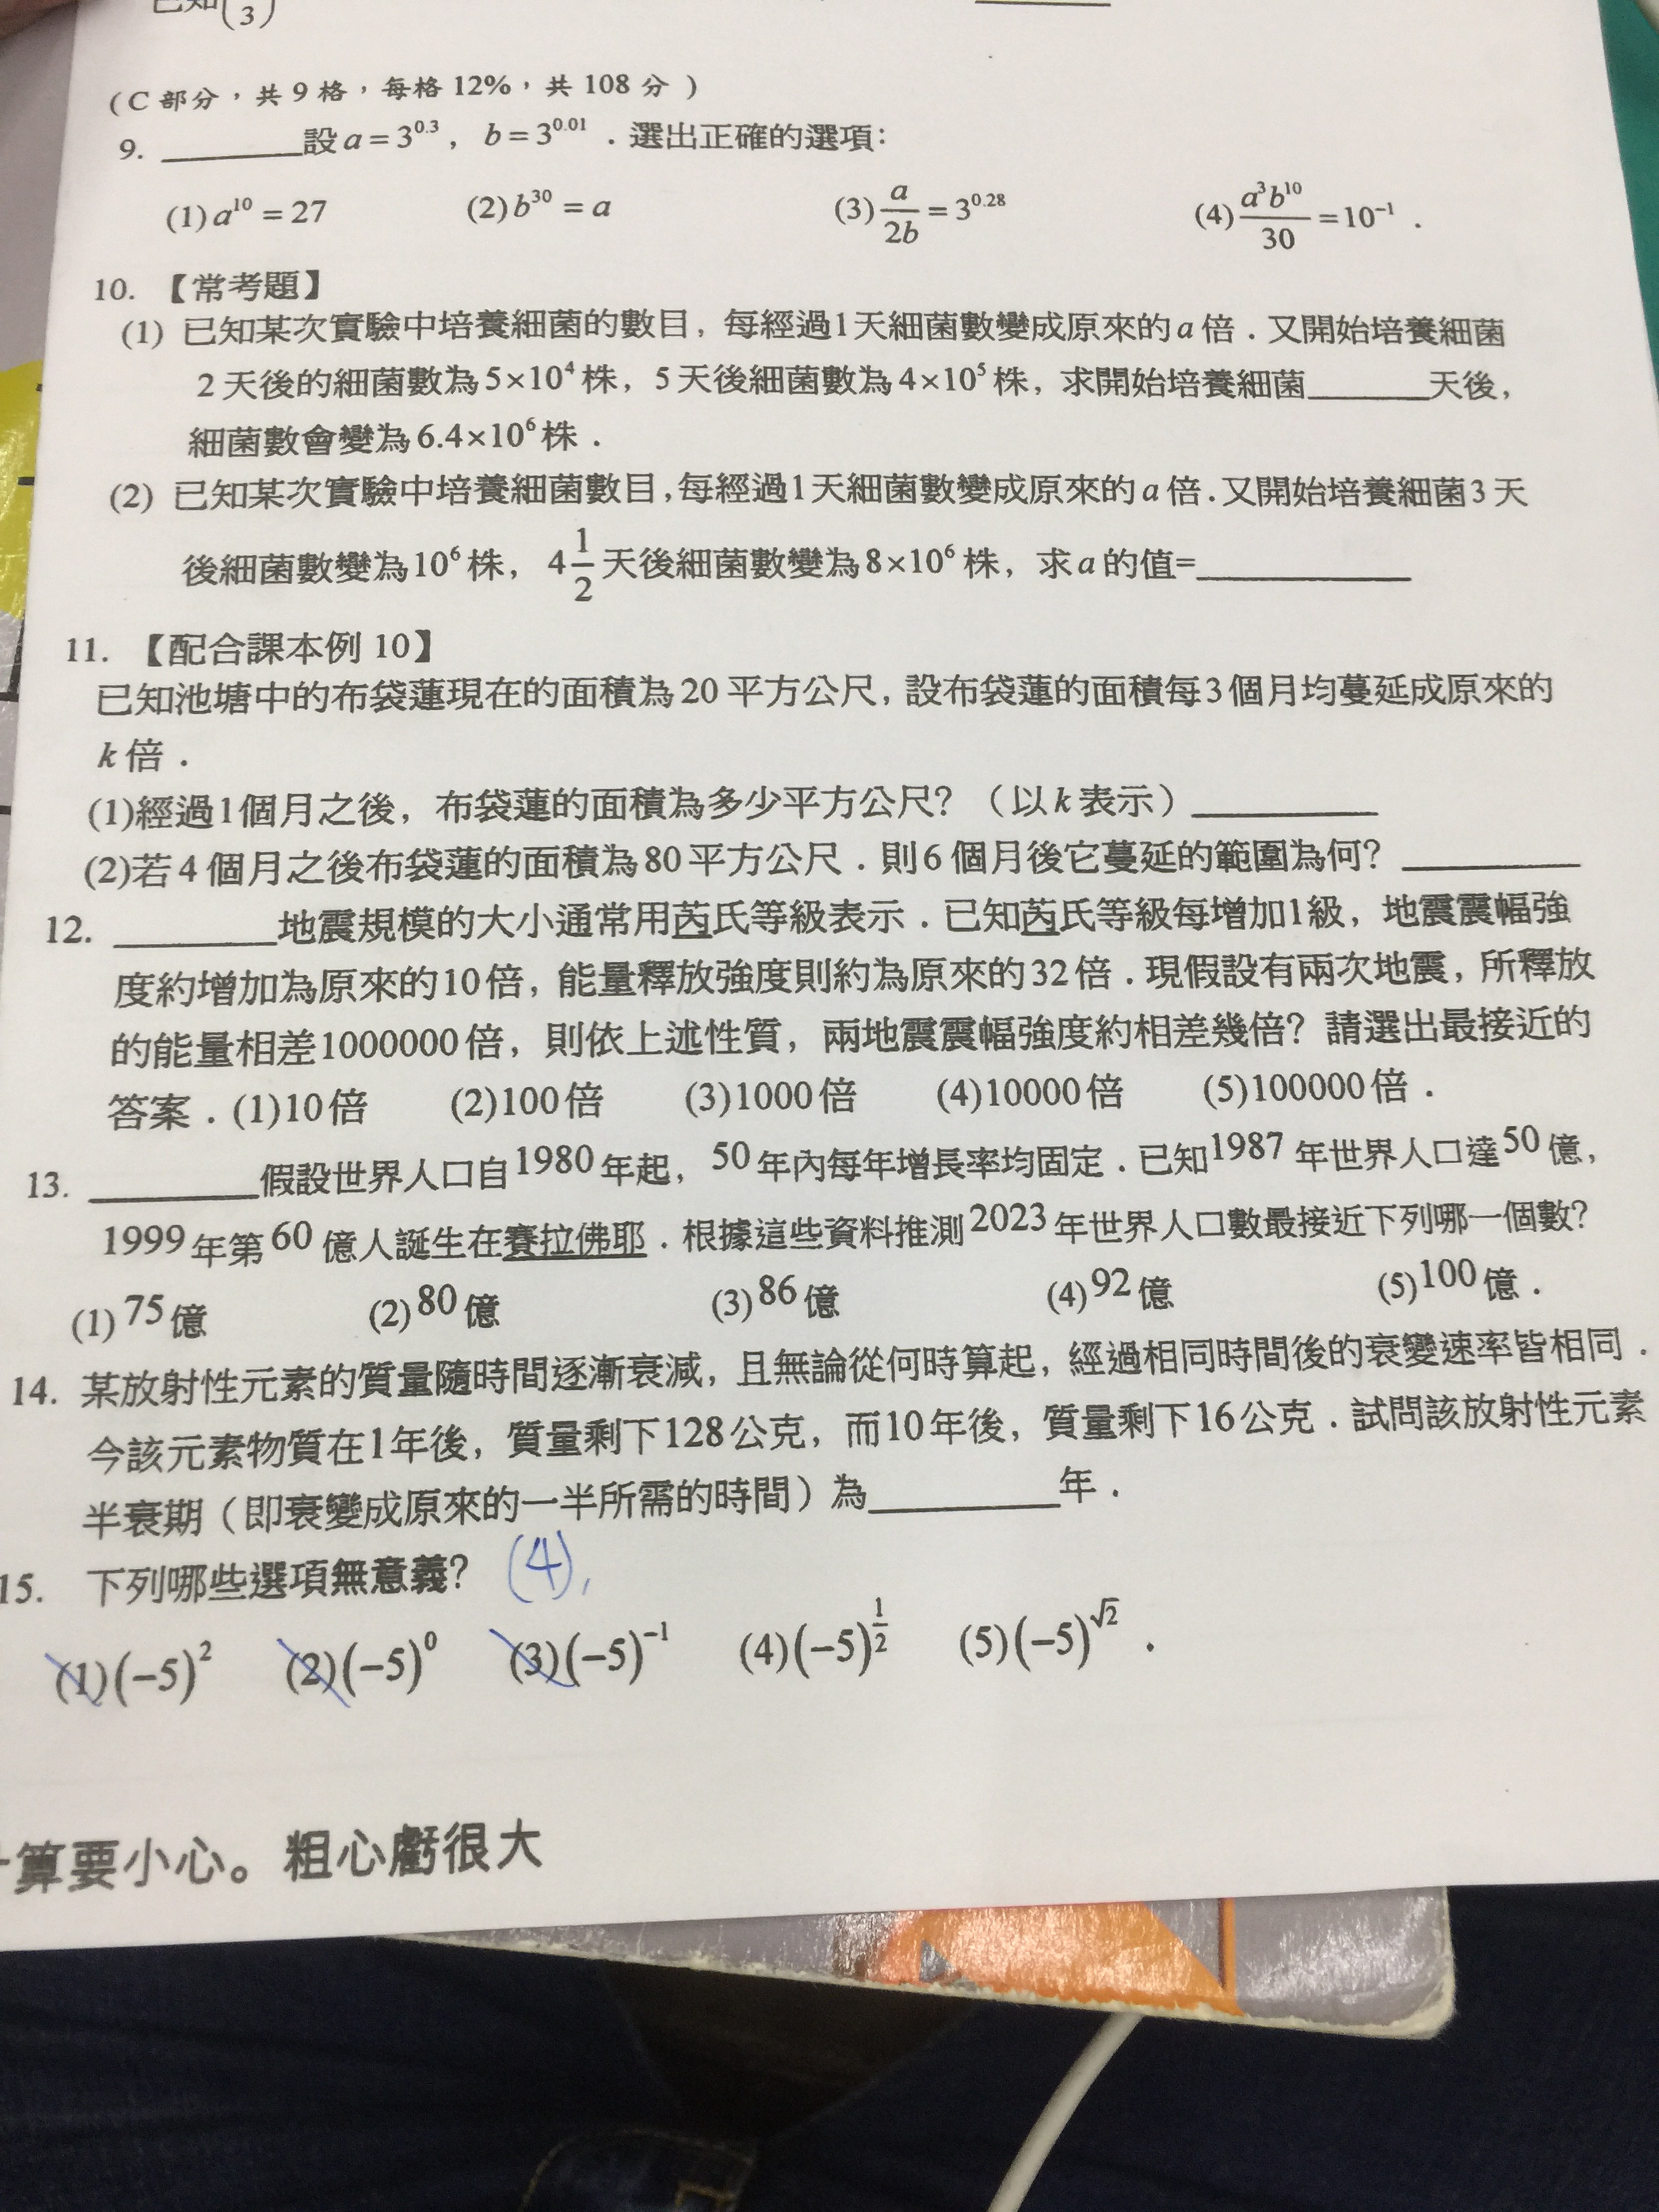 已知(3)
(C 部分，共 9 格，每格 12%，共 108 分 )
9. ________設 a = 3^0.3，b = 3^0.01．選出正確的選項：
(1) a^10 = 27 (2) b^30 = a (3) a/2b = 3^0.28 (4) a^3b^10/30 = 10^-1．
10. 【常考題】
(1) 已知某次實驗中培養細菌的數目，每經過1天細菌數變成原來的 a 倍．又開始培養細菌
2 天後的細菌數為 5×10^4 株，5 天後細菌數為 4×10^5 株，求開始培養細菌_______天後，
細菌數會變為 6.4×10^6 株．
(2) 已知某次實驗中培養細菌數目，每經過1天細菌數變成原來的 a 倍．又開始培養細菌3 天
後細菌數變為10^6 株，4 1/2 天後細菌數變為8×10^6 株，求 a 的值=____________
11. 【配合課本例 10】
已知池塘中的布袋蓮現在的面積為 20 平方公尺，設布袋蓮的面積每3 個月均蔓延成原來的
k 倍．
(1)經過1個月之後，布袋蓮的面積為多少平方公尺？（以 k 表示）__________
(2)若 4 個月之後布袋蓮的面積為 80 平方公尺．則 6 個月後它蔓延的範圍為何？__________
12. ________地震規模的大小通常用芮氏等級表示．已知芮氏等級每增加1級，地震震幅強
度約增加為原來的10倍，能量釋放強度則約為原來的32倍．現假設有兩次地震，所釋放
的能量相差1000000倍，則依上述性質，兩地震震幅強度約相差幾倍？請選出最接近的
答案．(1)10倍 (2)100倍 (3)1000倍 (4)10000倍 (5)100000倍．
13. ________假設世界人口自1980年起，50年內每年增長率均固定．已知1987年世界人口達50億，
1999年第60億人誕生在賽拉佛耶．根據這些資料推測2023年世界人口數最接近下列哪一個數？
(1) 75億 (2) 80億 (3) 86億 (4) 92億 (5) 100億．
14. 某放射性元素的質量隨時間逐漸衰減，且無論從何時算起，經過相同時間後的衰變速率皆相同．
今該元素物質在1年後，質量剩下128公克，而10年後，質量剩下16公克．試問該放射性元素
半衰期（即衰變成原來的一半所需的時間）為__________年．
15. 下列哪些選項無意義？ (4),
(1)(−5)^2 (2)(−5)^0 (3)(−5)^-1 (4)(−5)^1/2 (5)(−5)^√2．
算要小心。粗心虧很大